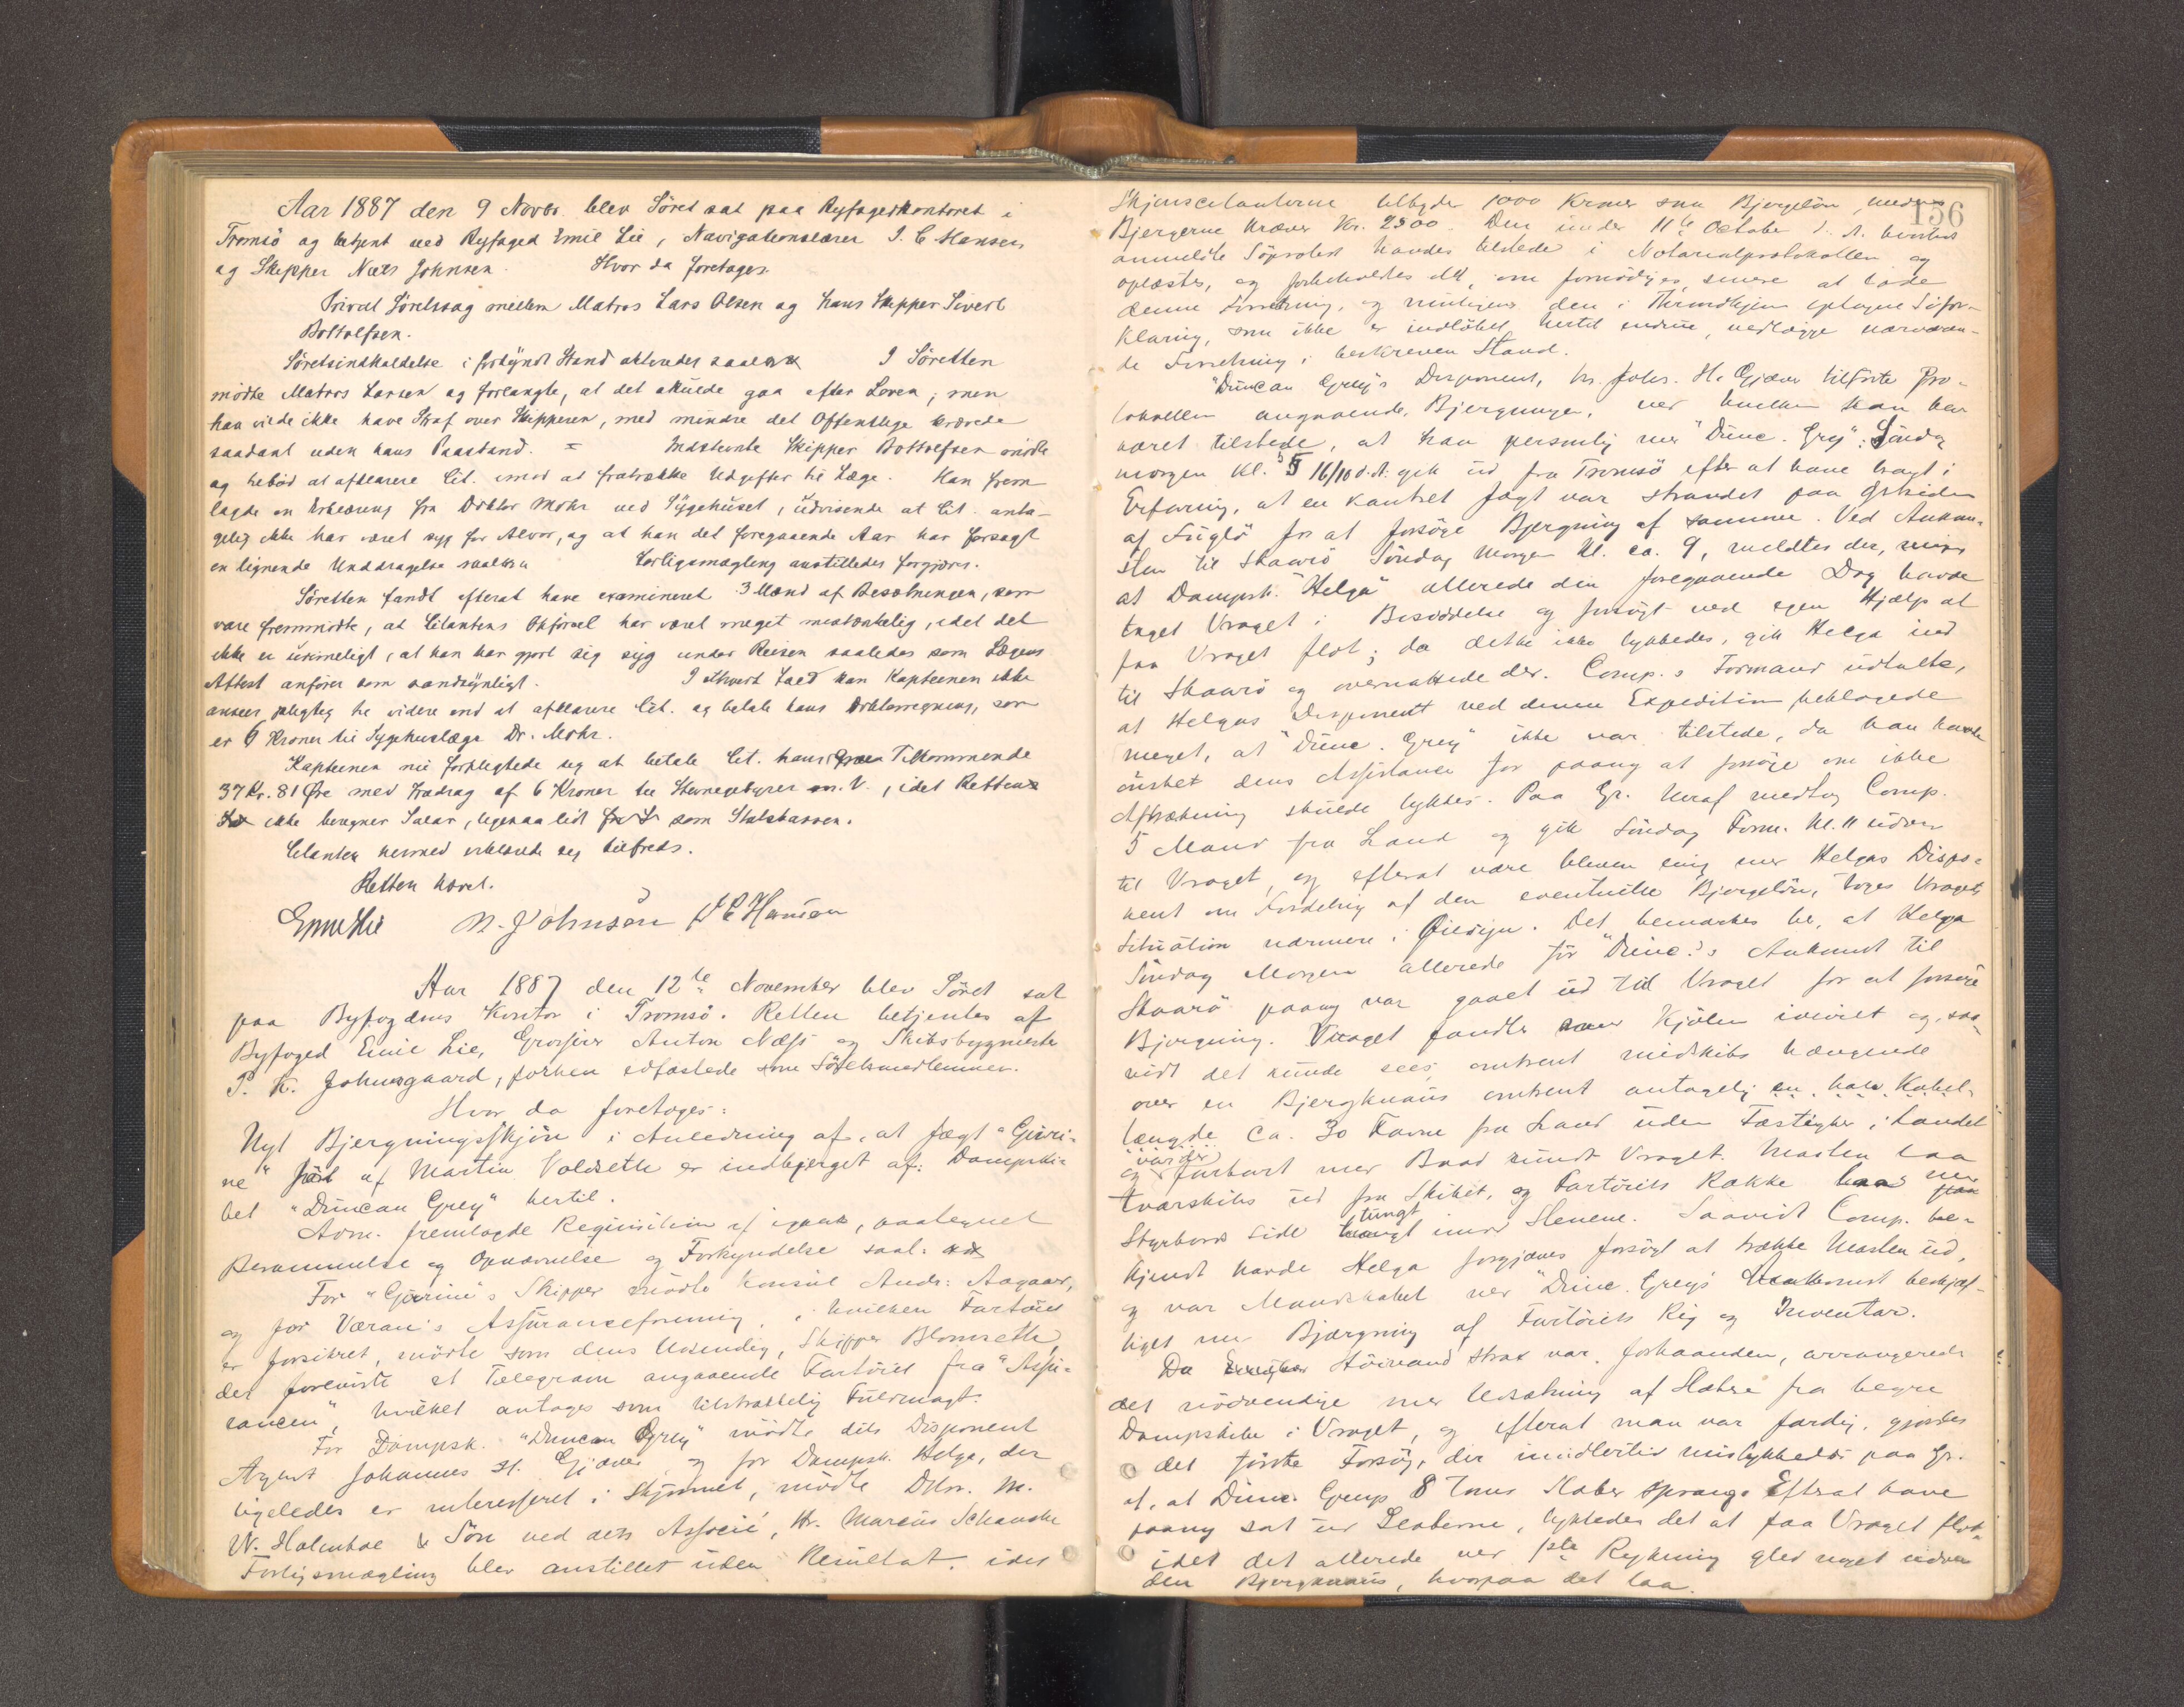 Aar 1887 den 9 Novbr. blev Söret sat paa Byfogedkontoret i
Tromsö og betjent ved Byfoged Emil Lie, Navigationslærer I. C. Hansen
og Skipper Niels Johnsen. Hvor da foretages
Privat Söretssag mellem Matros Lars Olsen og hans Skipper Sivert
Bottolfsen.
Söretsindkaldelse i forkyndt Stand aktoredes saal. I Söretten
mödte Matros Larsen og forlangte, at det skulde gaa efter Loven, men
han vilde ikke have Straf over Skipperen, med mindre det Offentlige krævede
saadant uden hans Paastand. = Indstevnte Skipper Bottolfsen mödte
og tilböd at afklarere Cit. imod at fratrække Udgifter til Læge. Han frem
lagde en Erklæring fra Doktor Mohr ved Sygehuset, udvisende at Cit. anta-
gelig ikke har været syg for Alvor, og at han det foregaaende Aar har forsøgt
en lignende Unddragelse saal. Forligsmægling anstilledes forgjæves.
Söretten fandt efterat have examineret 3 Mænd af Besætningen, som
vare fremmödte, at Citantens Opförsel har været meget mistænkelig, idet det
ikke er urimeligt, at han har gjort sig syg under Reisen saaledes som Lægens
Attest anförer som sandsynligt. I ethvert Fald kan Kapteinen ikke
ansees pligtig til videre end at afklarere Cit. og betale hans Doktorregning, som
er 6 Kroner til Sygehuslæge Dr. Mohr.
Kapteinen nu forpligtede sig at betale Cit. hans Tilkommende
37 Kr. 81 Öre med Fradrag af 6 Kroner til Stevnegebyrer m. V., idet Retten
ikke beregner Salær, ligesaalidt som Statskassen.
Citanten hermed erklærede sig tilfreds.
Retten hævet.
Emil Lie N. Johnson I C Hansen
Aar 1887 den 12te November blev Söret sat
paa Byfogdens Kontor i Tromsö. Retten betjentes af
Byfoged Emil Lie, Grosserer Anton Næss og Skibsbygmester
P. K. Johnsgaard, forhen edfæstede som Söretsmedlemmer.
Hvor da foretages:
Nyt Bjergningsskjön i Anledning af, at Jægt "Guri-
ne" fört af Martin Voldseth er indbjerget af Dampski-
bet "Duncan Grey" hertil.
Adm. fremlagde Requisition af igaar, paategnet
Berammelse og Opnævnelse og Forkyndelse saal:
For "Gurine"s Skipper mödte Konsul Andr: Aagaard,
og for Væran's Assuranceforening, i hvilken Fartöiet
er forsikret, mödte som dens Udsendig, Skipper Blomseth,
der foreviste et Telegram angaaende Fartöiet fra "Assu-
rancen", hvilket antages som tilstrækkelig Fuldmagt.
For Dampsk. "Duncan Grey" mödte dets Disponent
Agent Johannes H. Gjæver og for Dampsk. Helga, der
ligeledes er interesseret i Skjönnet, mödte DHrr. M.
W. Holmboe & Sön ved dets Associé, Hr. Marcus Schanche
Forligsmægling blev anstillet uden Resultat, idet
156
Skjönscitanterne tilbyder 1000 Kroner som Bjergelön, medens
Bjergerne kræver Kr. 2500. Den under 11te October d. A.
anmeldte Söprotest havdes tilstede i Notarialprotokollen og
oplæstes, og forbeholdtes det, om fornödiges, senere at lade
denne Forretning, og muligens den i Throndhjem optagne Söfor-
klaring, som ikke er indlöbet hertil endnu, vedlægge nærværen-
de Forretning i beskreven Stand.
"Duncan Grey"s Disponent, Hr. Johs. H. Gjæver tilförte Pro-
tokollen angaaende Bjergningen, ved hvilken han har
været tilstede, at han personlig med "Dunc. Grey" Söndag
morgen Kl. 5 16/10 d. A. gik ud fra Tromsö efter at have bragt i
Erfaring, at en kantret Jægt var strandet paa Östsiden
af Fuglö for at forsöge Bjergning af samme. Ved Ankom-
sten til Skaarö Söndag Morgen Kl. ca. 9, meldtes der,
at Dampsk. "Helga" allerede den foregaaende Dag havde
taget Vraget i Besiddelse og forsögt ved egen Hjælp at
faa Vraget flot; da dette ikke lykkedes, gik Helga ind
til Skaarö og overnattede der. Comp.s Formand udtalte,
at Helgas Disponent ved denne Expedition beklagede
meget, at "Dunc. Grey" ikke var tilstede, da han havde
önsket dens Assistance for paany at forsöge om ikke
Aftrækning skulde lykkes. Paa Gr. heraf medtog Comp.
5 Mand fra Land og gik Söndag Form. Kl. 11 udover
til Vraget, og efterat være bleven enig med Helgas Dispo-
nent om Fordeling af den eventuelle Bjergelön, toges Vragets
Situation nærmere i Öiesyn. Det bemærkes bl., at Helga
Söndag Morgen allerede för "Dunc."s Ankomst til
Skaarö paany var gaaet ud til Vraget for at forsöge
Bjergning. Vraget fandtes med Kjölen iveiret og, saa-
vidt det kunde sees, omtrent midskibs hængende
over en Bjergknaus omtrent antagelig en halv Kabel-
længde ca. 30 Favne fra Land uden Fæstigher i Landet
og var der farbart med Baad rundt Vraget. Masten laa
tværskibs ud fra Skibet, og Fartöiets Række laa med
Styrbords Side tungt imod Stenene. Saavidt Comp. be-
kjendt havde Helga forgjæves forsögt at trække Masten ud,
og var Mandskabet ved "Dunc. Grey"s Ankomst beskjæf-
tiget med Bjærgning af Fartöiets Rig og Inventar.
Da Höivand strax var forhaanden, arrangeredes
det nödvendige med Udsætning af Slæbere fra begge
Dampskibe i Vraget, og efterat man var færdig, gjordes
det förste Forsög, der imidlertid mislykkedes paa Gr.
af, at Dunc. Greys 8 Toms Slaber sprang. Efterat have
paany sat ud Slæberne, lykkedes det at faa Vraget flot,
idet det allerede ved 1ste Rykning gled noget udover
den Bjergknaus, hvorpaa det laa.